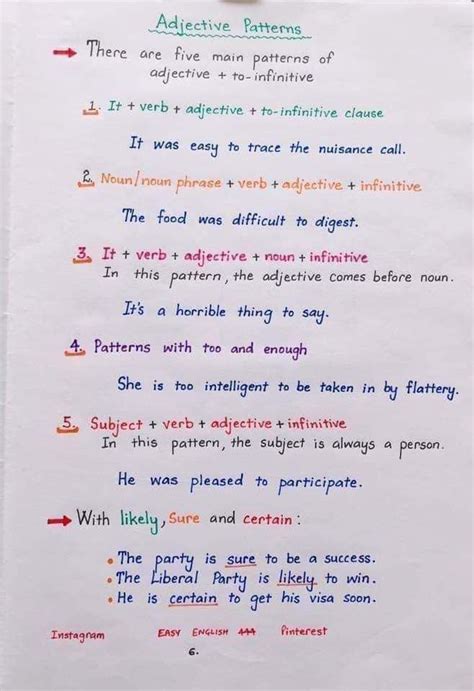 Adjective Patterns
→ There are five main patterns of
adjective + to-infinitive
1. It + verb + adjective + to-infinitive clause
It was easy to trace the nuisance call.
2. Noun/noun phrase + verb + adjective + infinitive
The food was difficult to digest.
3. It + verb + adjective + noun + infinitive
In this pattern, the adjective comes before noun.
It's a horrible thing to say.
4. Patterns with too and enough
She is too intelligent to be taken in by flattery.
5. Subject + verb + adjective + infinitive
In this pattern, the subject is always a person.
He was pleased to participate.
→ With likely, Sure and certain:
• The party is sure to be a success.
• The Liberal Party is likely to win.
• He is certain to get his visa soon.
Instagram EASY ENGLISH 444 Pinterest
6.